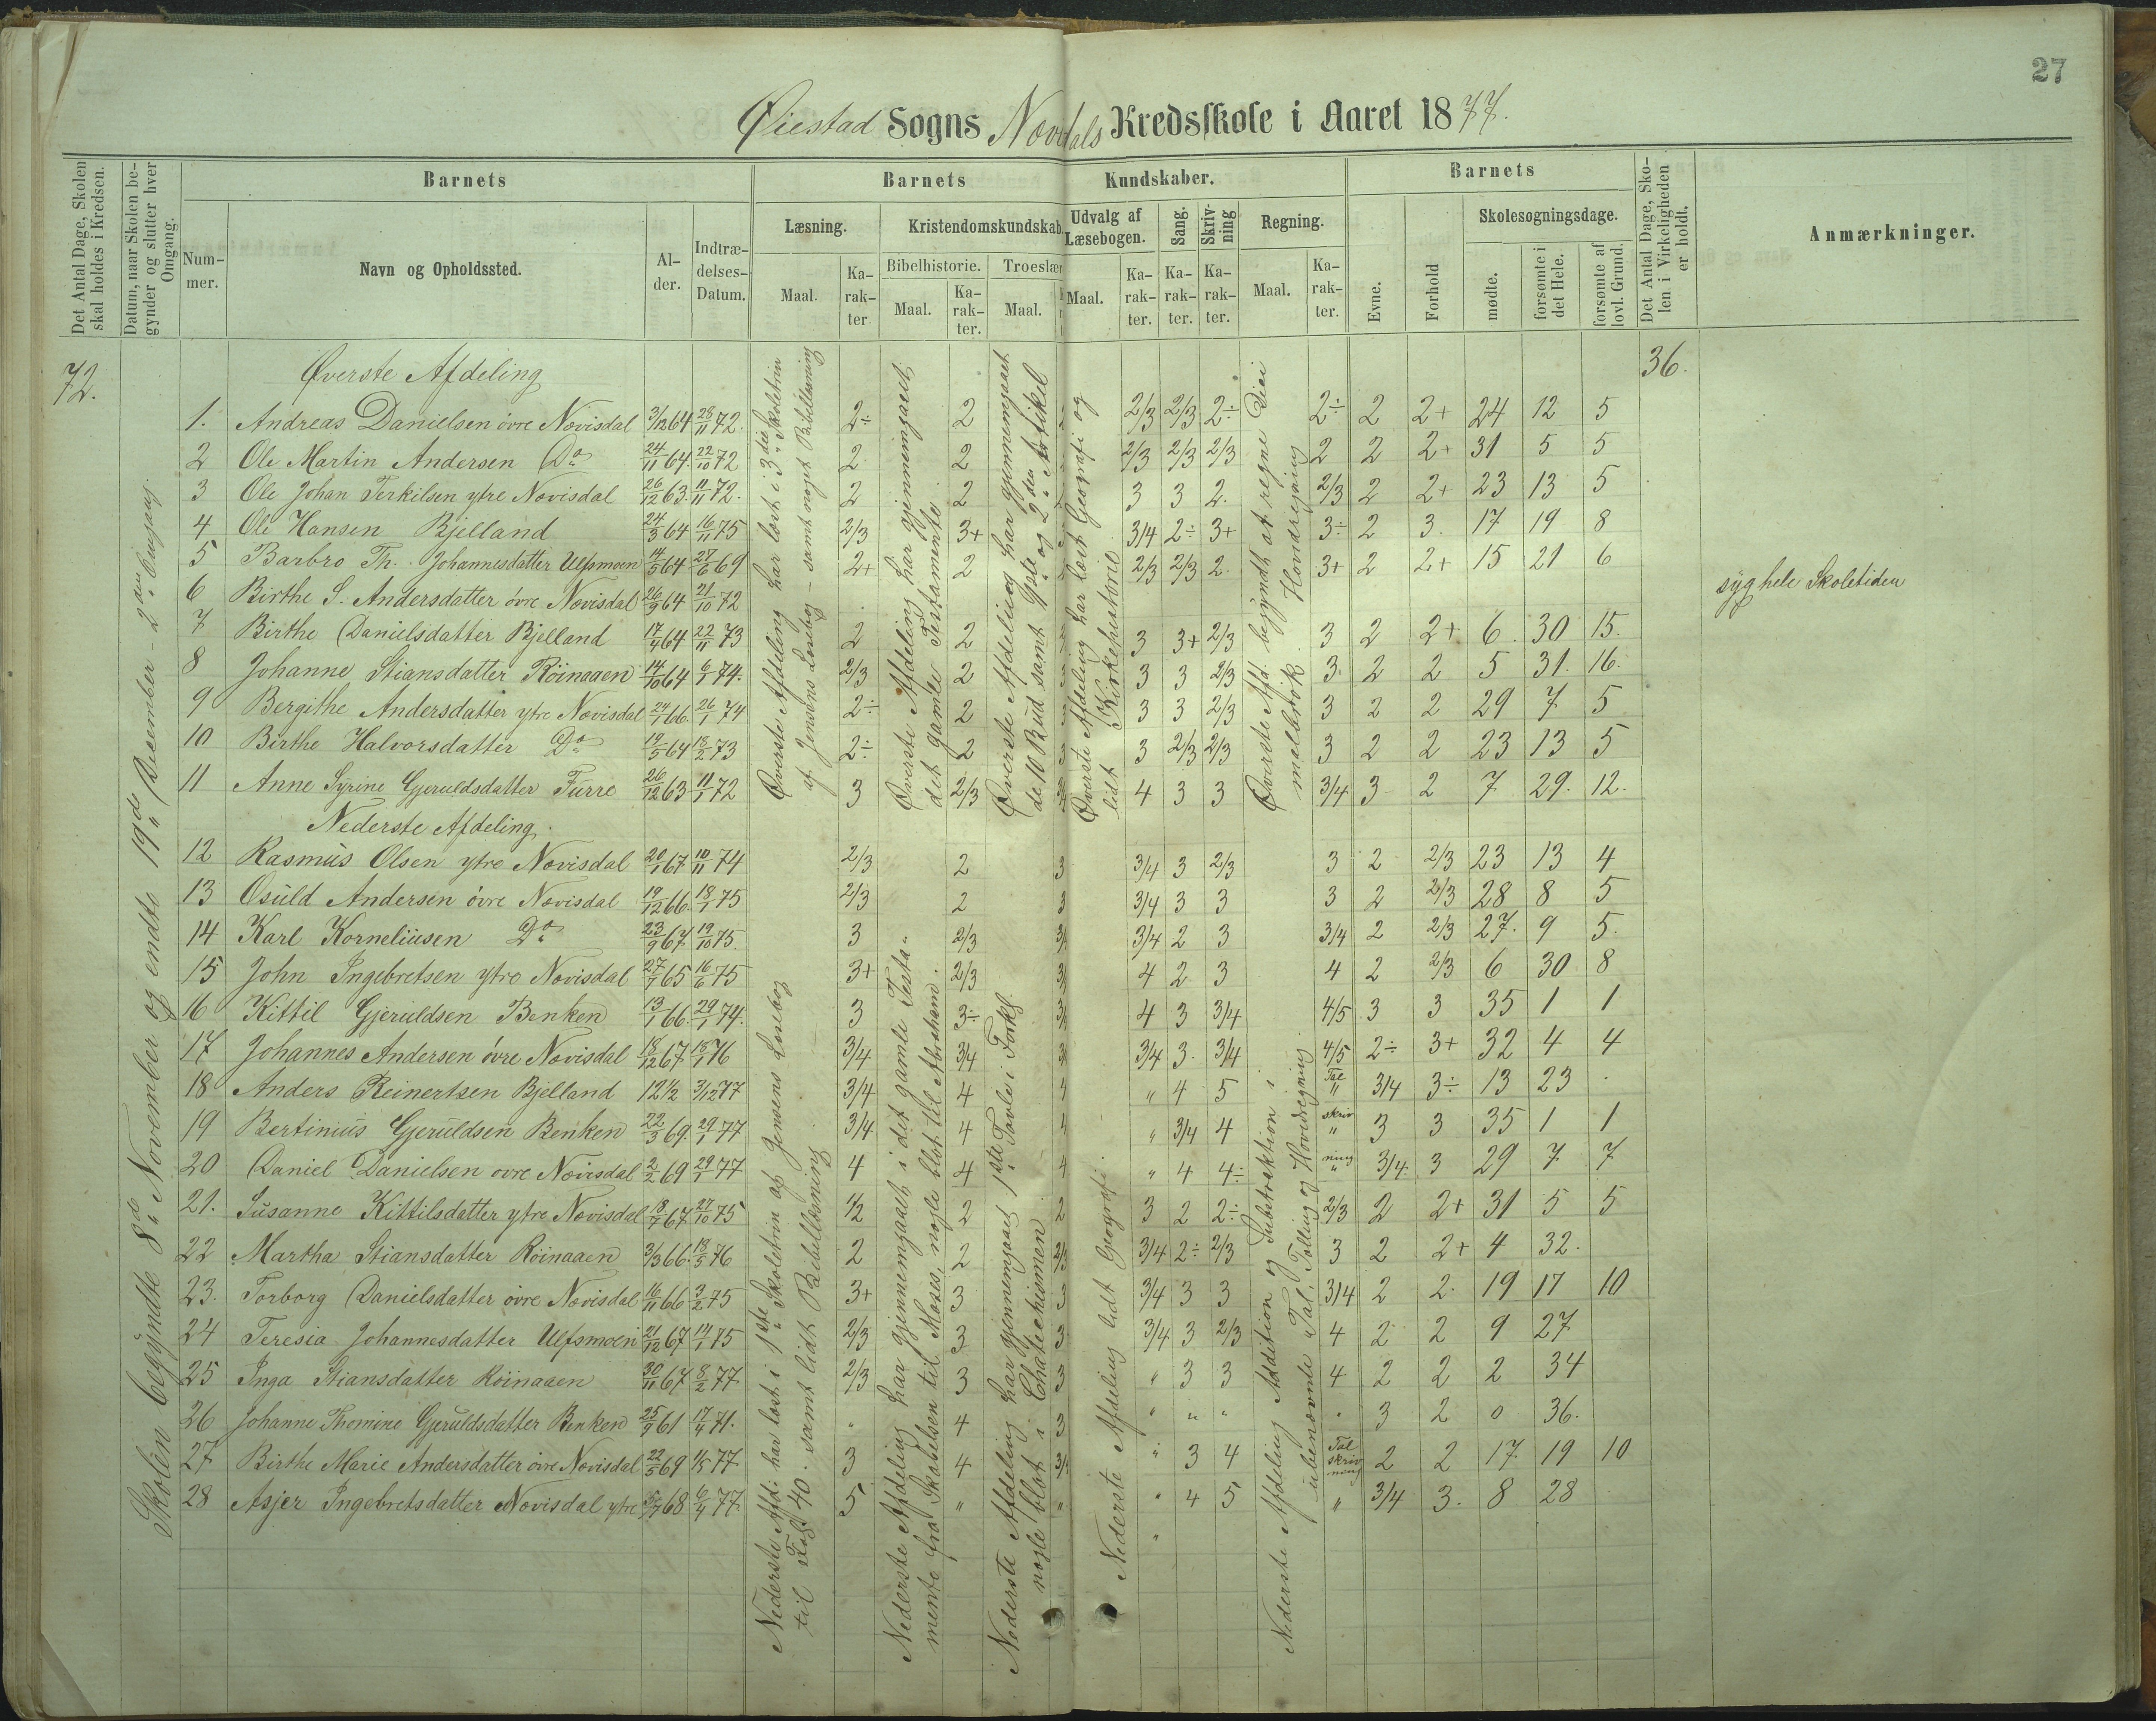 27
Øiestad Sogns Nævdals Kredsskole i Aaret 1877.
Det Antal Dage, Skolen skal holdes i Kredsen.
Datum, naar Skolen begynder og slutter hver Omgang.
Barnets
Barnets
Kundskaber.
Barnets
Det Antal Dage, Skolen i Virkeligheden er holdt.
Anmærkninger.
Nummer.
Navn og Opholdssted.
Alder.
Indtrædelses-Datum.
Læsning.
Kristendomskundskab
Udvalg af Læsebogen.
Sang.
Skrivning
Regning.
Evne.
Forhold
Skolesøgningsdage.
Maal.
Karakter
Bibelhistorie.
Troeslær
Maal.
Karakter.
Maal.
Maal.
Karakter.
Karakter.
Karakter.
Maal.
Karakter.
mødte.
forsømte i det Hele.
forsømte af lovl. Grund.
72.
Øverste Afdeling
36.
1. Andreas Danielsen øvre Novisdal 3/12 64 28/11 72. 2÷ 2 2/3 2/3 2÷ 2÷ 2 2+ 24 12 5
2 Ole Martin Andersen Do 24/11 64. 22/10 72 2 2 2/3 2/3 2/3 2 2 2+ 31 5 5
3 Ole Johan Terkilsen ytre Novisdal 26/12 63. 11/11 72. 2 2 3 3 2. 2/3 2 2+ 23 13 5
4 Ole Hansen Bjelland 24/3 64 16/11 75 2/3 3+ 3/4 2÷ 3+ 3÷ 2 3. 17 19 8
5 Barbro Th. Johannesdatter Ulfsmoen 14/5 64 27/6 69 2+ 2 2/3 2/3 2. 3+ 2 2+ 15 21 6
6 Birthe S. Andersdatter øvre Novisdal 26/9 64 21/10 72 syg hele Skoletiden
7 Birthe Danielsdatter Bjelland 17/4 64 22/11 73 2 2 3 3+ 2/3 3 2 2+ 6. 30 15.
8 Johanne Stiansdatter Röinaaen 14/10 64 6/1 74. 2/3 2 3 3 2/3 3. 2 2 5 31. 16.
9 Bergithe Andersdatter ytre Novisdal 24/1 66. 26/1 74 2÷ 2 3 3 2/3 3 2 2 29 7 5
10 Birthe Halvorsdatter Do 19/5 64 18/2 73 2÷ 2 3 2/3 2/3 3 2 2 23 13 5
11 Anne Syrine Gjeruldsdatter Furre 26/12 63 11/1 72 3 2/3 4 3 3 3/4 3 2 7 29. 12.
Nederste Afdeling.
12 Rasmus Olsen ytre Novisdal 20/1 67 10/11 74 2/3 2 3 3/4 3 2/3 3 2 2/3 23 13 4
13 Osuld Andersen øvre Novisdal 19/12 66. 18/1 75 2/3 2 3 3/4 3 3 3 2 2/3 28 8 5
14 Karl Korneliusen Do 23/9 67 19/10 75. 3 2/3 3/4 2 3 3/4 2 2/3 27. 9 5.
15 John Ingebretsen ytre Novisdal 27/7 65 16/6 75 3+ 2/3 4 2 3 4 2 2/3 6 30 8
16 Kittil Gjeruldsen Benken 13/1 66. 29/1 74. 3 3÷ 4 3 3/4 4/5 3 3 35 1 1
17 Johannes Andersen øvre Novisdal 18/12 67 18/1 76 3/4 3/4 3/4 3. 3/4 4/5 2÷ 3+ 32 4 4
18 Anders Reinertsen Bjelland 12 1/2 3/12 77 3/4 4 4 " 4 5 Tal " 3/4 3÷ 13 23
19 Bertinius Gjeruldsen Benken 22/3 69. 29/1 77 3/4 4 4 " 3/4 4 skriv " 3 3 35 1 1
20 Daniel Danielsen ovre Novisdal 2/2 69 29/1 77 4 4 4 " 4 4÷ ning " 3/4. 3 29 7 7
21. Susanne Kittilsdatter ytre Novisdal 18/7 67. 27/10 75 1/2 2 2 3 2 2÷ 2/3 2 2+ 31 5 5
22 Martha Stiansdatter Röinaaen 3/3 66. 18/5 76 2 2 2/3 3/4 2÷ 2/3 3 2 2+ 4 32.
23. Torborg Danielsdatter øvre Novisdal 16/11 66 3/2 75 3+ 3 3 3/4 3 3 3/4 2 2. 19 17 10
24 Teresia Johannesdatter Ulfsmoen 21/12 67 14/1 75 2/3 3 3 3/4 3 2/3 4 2 2 9 27
25 Inga Stiansdatter Röinaaen 30/11 67 8/2 77 2/3 3 3 " 3 3 4 2 2 2 34
26 Johanne Thomine Gjeruldsdatter Benken 25/9 61 17/4 71. " 4 3 " " " " 3 2 0 36.
27 Birthe Marie Andersdatter øvre Novisdal 22/5 69 1/5 77 3 4 3/4 " 3 4 Tal skriv ning 2 2 17 19 10
28 Asjer Ingebretsdatter Novisdal ytre 68 6/4 77. 5 " " " 4 5 " 3/4 3. 8 28
"
Skolen begyndte 8de November og endte 19de Desember - 2den Omgang.
Øverste Afdeling har læst i 3die Skoletrin
af Jensens Læsebog - samt noget Bibellæsning
Øverste Afdeling har gjennemgaaet
det gamle Testamente
Øverste Afdeling har gjennemgaaet
de 10 Bud samt 1ste og 2den Artikel
Øverste Afdeling har læst Geografi og
lidt Kirkehistorie
Øverste Afd. begyndt at regne Deci
malbrøk. Hovedregning
Nederste Afd. har læst i 1ste Skoletrin af Jensens Læsebog
til Fag 40. samt lidt Bibellæsning
Nederste Afdeling har gjennemgaaet i det gamle Testa-
mente fra Skabelsen til Moses, nogle blot til Abraham.
Nederste Afdeling har gjennemgaaet 1ste Tavle i Forkl.
nogle blot i Chatechismen
Nederste Afdeling lidt Geografi.
Nederste Afdeling Addition og Subtraktion i
ubenævnte Tal, Tælling og Hovedregning.